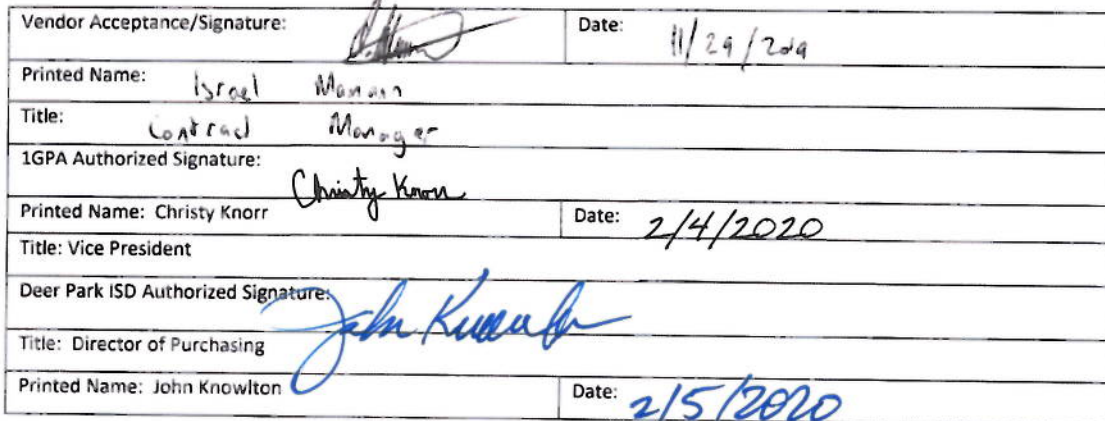 Vendor Acceptance/Signature: Date: 11/29/2019
Printed Name: Israel
Title: Contract Manager
1GPA Authorized Signature: Christy Knorr
Printed Name: Christy Knorr Date: 2/4/2020
Title: Vice President
Deer Park ISD Authorized Signature: John Knowlton
Title: Director of Purchasing
Printed Name: John Knowlton Date: 2/5/2020